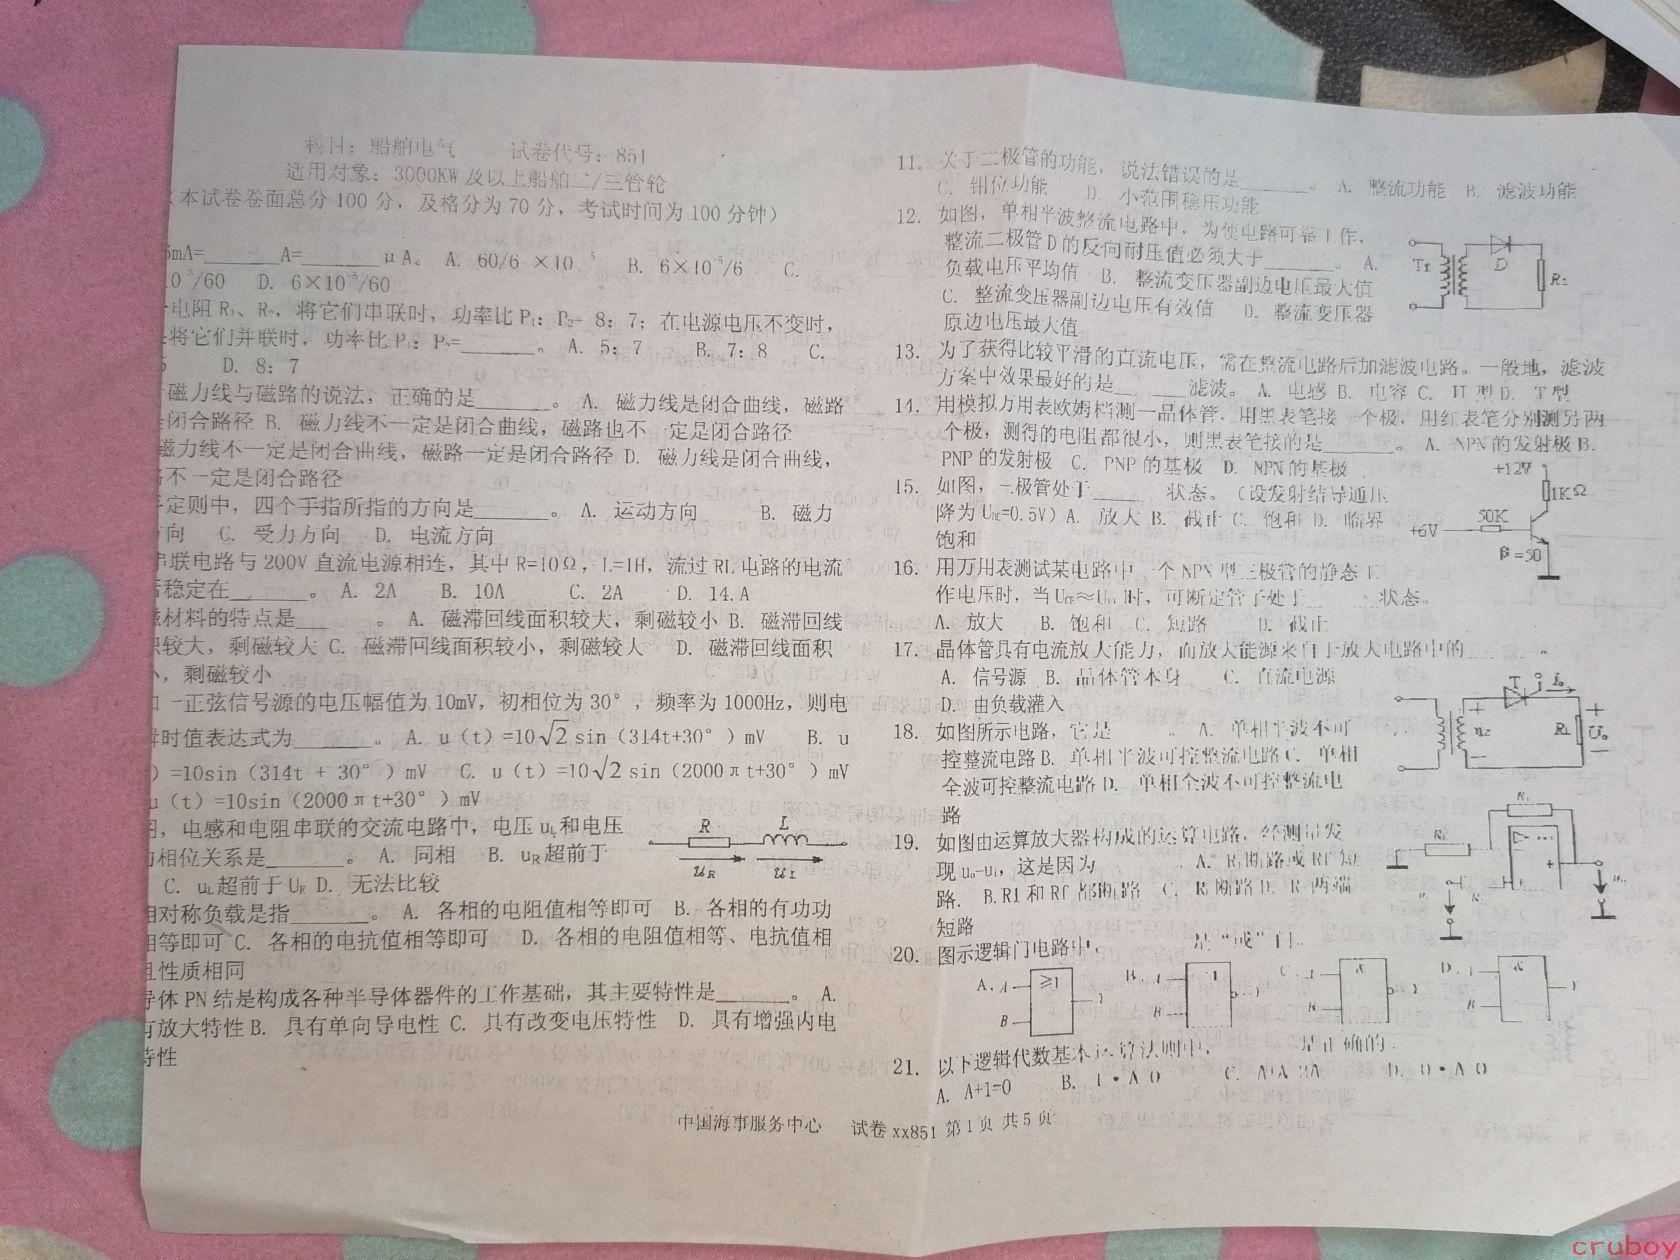 科目：船舶电气 试卷代号：851
适用对象：3000KW及以上船舶二/三管轮
（本试卷卷面总分100分，及格分为70分，考试时间为100分钟）
mA=_______A=_______μA。 A. 60/6 ×10 B. 6×10 /6 C.
/60 D. 6×10 /60
电阻R₁、R₂，将它们串联时，功率比P₁：P₂= 8：7；在电源电压不变时，
将它们并联时，功率比P₁：P₂=_______。 A. 5：7 B. 7：8 C.
D. 8：7
磁力线与磁路的说法，正确的是_______。 A. 磁力线是闭合曲线，磁路
是闭合路径 B. 磁力线不一定是闭合曲线，磁路也不一定是闭合路径
磁力线不一定是闭合曲线，磁路一定是闭合路径 D. 磁力线是闭合曲线，
不一定是闭合路径
定则中，四个手指所指的方向是_______。 A. 运动方向 B. 磁力
方向 C. 受力方向 D. 电流方向
串联电路与200V直流电源相连，其中R=10Ω，L=1H，流过RL电路的电流
稳定在_______。 A. 2A B. 10A C. 2A D. 14.A
材料的特点是_______。 A. 磁滞回线面积较大，剩磁较小 B. 磁滞回线
较大，剩磁较大 C. 磁滞回线面积较小，剩磁较大 D. 磁滞回线面积
，剩磁较小
一正弦信号源的电压幅值为10mV，初相位为30°，频率为1000Hz，则电
时值表达式为_______。 A. u（t）=10√2 sin（314t+30°）mV B. u
）=10sin（314t + 30°）mV C. u（t）=10√2 sin（2000πt+30°）mV
u（t）=10sin（2000πt+30°）mV
，电感和电阻串联的交流电路中，电压uL和电压
相位关系是_______。 A. 同相 B. uR超前于
C. uL超前于UR D. 无法比较
R L
uR uL
对称负载是指_______。 A. 各相的电阻值相等即可 B. 各相的有功功
相等即可 C. 各相的电抗值相等即可 D. 各相的电阻值相等、电抗值相
且性质相同
导体PN结是构成各种半导体器件的工作基础，其主要特性是_______。 A.
有放大特性 B. 具有单向导电性 C. 具有改变电压特性 D. 具有增强内电
特性
11. 关于二极管的功能，说法错误的是_______。 A. 整流功能 B. 滤波功能
C. 钳位功能 D. 小范围稳压功能
12. 如图，单相半波整流电路中，为使电路可靠工作，
整流二极管D的反向耐压值必须大于_______。 A.
负载电压平均值 B. 整流变压器副边电压最大值
C. 整流变压器副边电压有效值 D. 整流变压器
原边电压最大值
Tr D
13. 为了获得比较平滑的直流电压，需在整流电路后加滤波电路。一般地，滤波
方案中效果最好的是_______滤波。 A. 电感 B. 电容 C. Π型 D. T型
14. 用模拟万用表欧姆档测一晶体管，用黑表笔接一个极，用红表笔分别测另两
个极，测得的电阻都很小，则黑表笔接的是_______。 A. NPN的发射极 B.
PNP的发射极 C. PNP的基极 D. NPN的基极
15. 如图，三极管处于_______状态。（设发射结导通压
降为UBE=0.5V）A. 放大 B. 截止 C. 饱和 D. 临界
饱和
+12V
1KΩ
50K
+6V
β=50
16. 用万用表测试某电路中一个NPN型三极管的静态工
作电压时，当 时，可断定管子处于_______状态。
A. 放大 B. 饱和 C. 短路 D. 截止
17. 晶体管具有电流放大能力，而放大能源来自于放大电路中的_______。
A. 信号源 B. 晶体管本身 C. 直流电源
D. 由负载灌入
18. 如图所示电路，它是_______。 A. 单相半波不可
控整流电路 B. 单相半波可控整流电路 C. 单相
全波可控整流电路 D. 单相全波不可控整流电
路
T Io
u2 RL Uo
19. 如图由运算放大器构成的运算电路，经测量发
现uo=ui，这是因为_______。 A. R1断路或Rf短
路． B.R1和Rf都断路 C. 断路 D. 两端
短路
20. 图示逻辑门电路中，_______是“或”门。
A. A B ≥1 B. C. D. B
21. 以下逻辑代数基本运算法则中，_______是正确的。
A. A+1=0 B. 1·A D. 0·A
中国海事服务中心 试卷xx851 第1页 共5页
cruboy